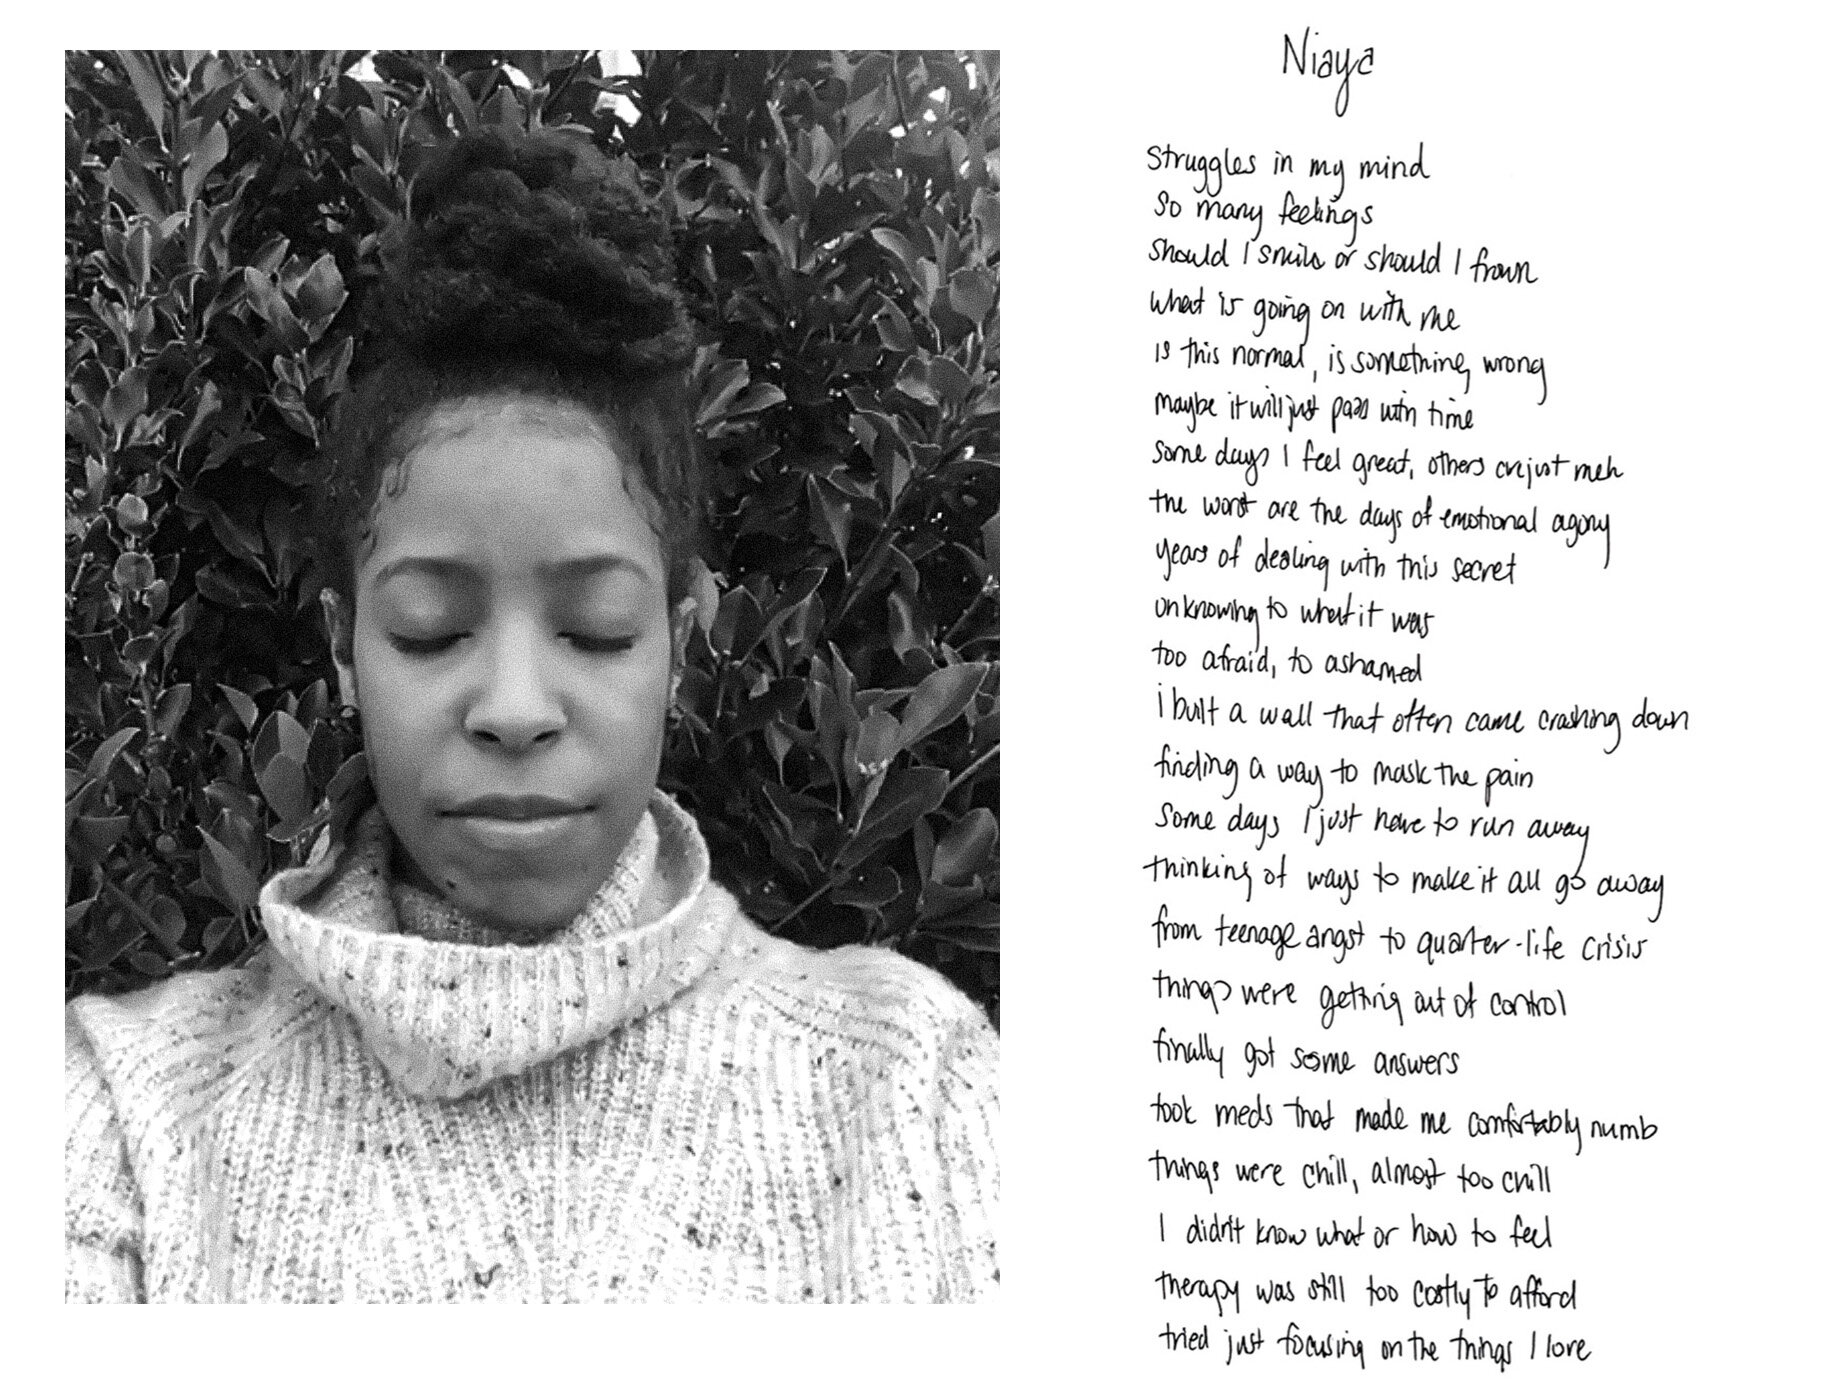 Niaya
Struggles in my mind
So many feelings
should I smile or should I frown
what is going on with me
is this normal, is something wrong
maybe it will just pass with time
some days I feel great, others are just meh
the worst are the days of emotional agony
years of dealing with this secret
unknowing to what it was
too afraid, to ashamed
i built a wall that often came crashing down
finding a way to mask the pain
Some days I just have to run away
thinking of ways to make it all go away
from teenage angst to quarter-life crisis
things were getting out of control
finally got some answers
took meds that made me comfortably numb
things were chill, almost too chill
I didn't know what or how to feel
therapy was still too costly to afford
tried just focusing on the things I love